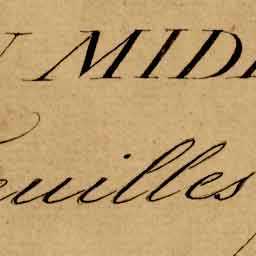 U MIDI
euilles